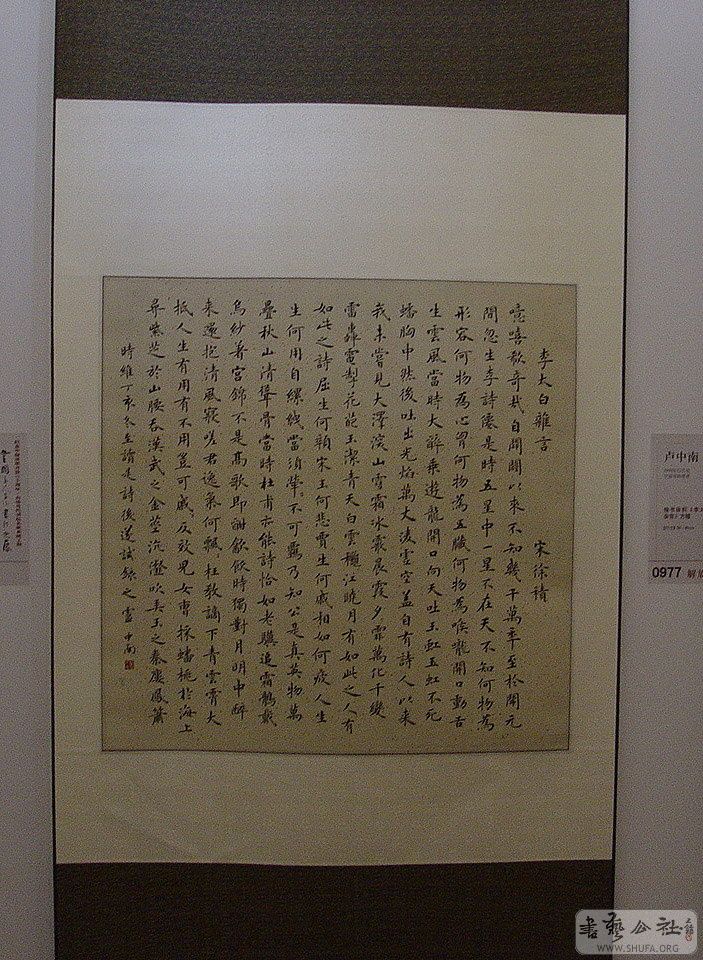 李太白雜言 宋徐積
噫嘻歔奇哉自開闢以來不知幾千萬年至於開元
間忽生李詩僊是時五星中一星不在天不知何物為
形容何物為心胷何物為五臟何物為喉嚨開口動舌
生雲風當時大醉乘遊龍開口向天吐玉虹玉虹不死
蟠胸中然後吐出光焰萬丈凌雲空蓋自有詩人以來
我未嘗見大澤深山雪霜冰霰晨霞夕霏萬化千變
雷轟電掣花葩玉潔青天白雲穐江曉月有如此之人有
如此之詩屈生何顇宋玉何悲賈生何戚相如何疲人生
生何用自縲絏當須犖々不可羈乃知公是真英物萬
疊秋山清聳骨當時杜甫亦能詩恰如老驥追霜鶻戴
烏紗着宮錦不是高歌即酣飲飲時獨對月明中醉
來還抱清風寢嗟君逸氣何飄枉教謫下青雲霄大
抵人生有用有不用豈可戚反效兒女曹採蟠桃於海上
尋紫芝於山腰吞漢武之金莖沆瀣吹弄玉之秦樓鳳簫
時維丁亥冬至讀是詩後遂試錄之 中南
卢中南
0977 解放
書藝公社
WWW.SHUFA.ORG